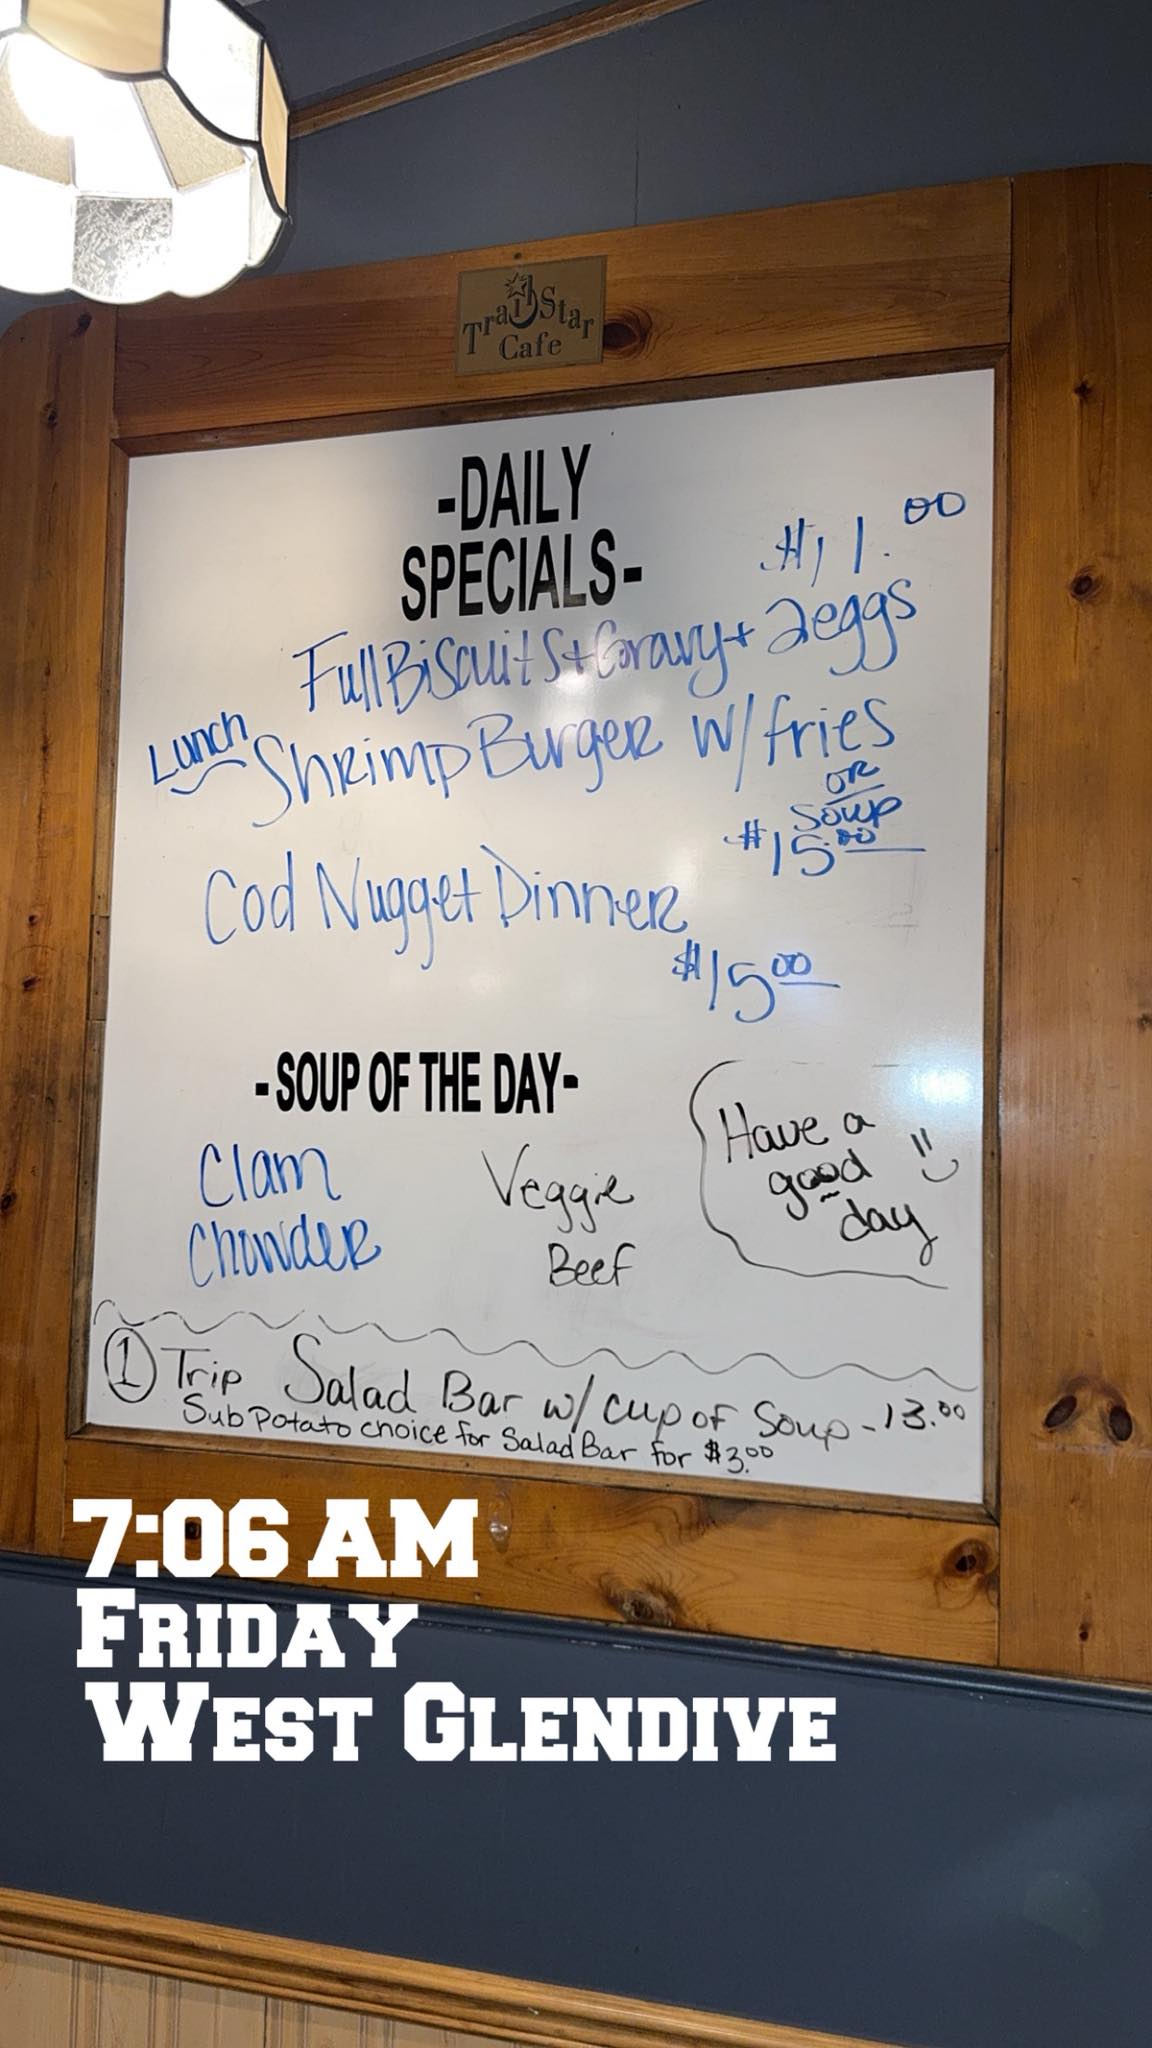 Trail Star
Cafe
-DAILY
SPECIALS-
$11.00
Full Biscuits + Gravy + 2 eggs
Lunch
Shrimp Burger w/ fries
or
Soup
$15.00
Cod Nugget Dinner
$15.00
-SOUP OF THE DAY-
Clam
Chowder
Veggie
Beef
Have a
good
day
1 Trip Salad Bar w/ cup of Soup - 13.00
Sub Potato choice for Salad Bar for $3.00
7:06 AM
FRIDAY
WEST GLENDIVE